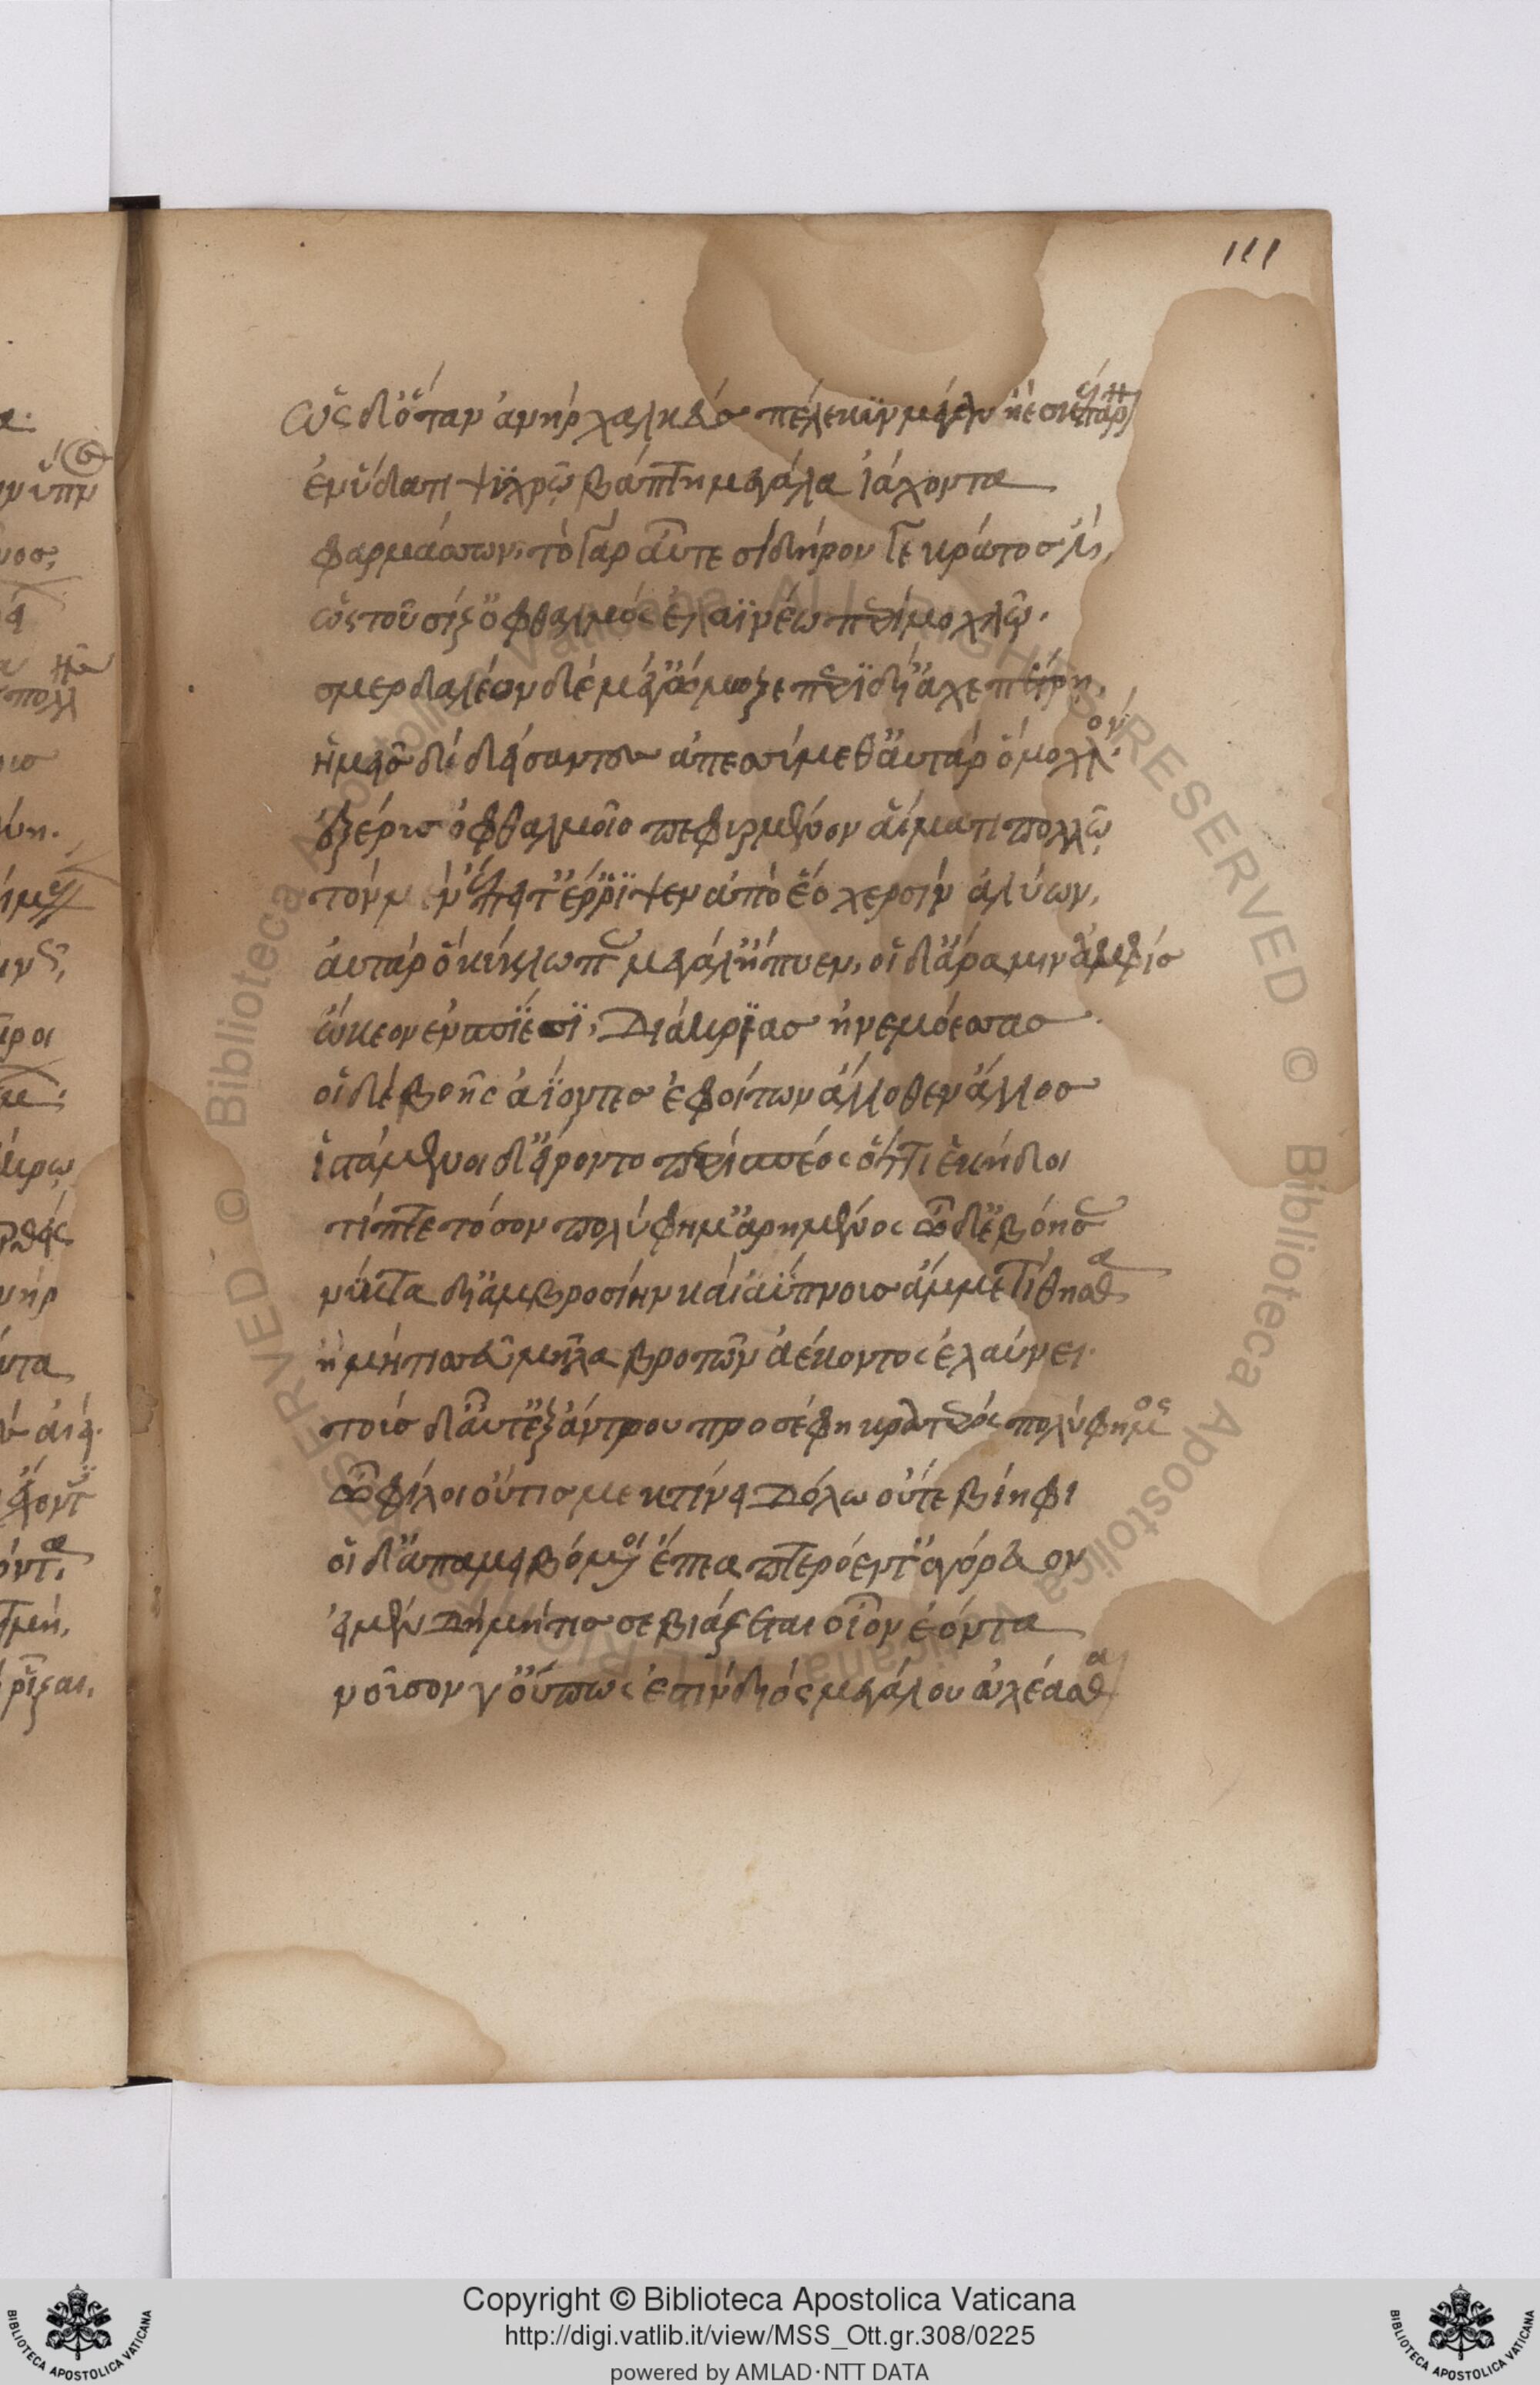 111
ὡς δ' ὅταν ἀνὴρ χαλκεὺς πέλεκυν μέγαν ἠὲ σκέπαρ
ἐν ὕδατι ψυχρῷ βάπτῃ μεγάλα ἰάχοντα
φαρμάσσων, τὸ γὰρ αὖτε σιδήρου γε κράτος ἐστὶ,
ὡς τοῦ σίζ' ὀφθαλμὸς ἐλαϊνέω περὶ μοχλῷ.
σμερδαλέον δὲ μέγ' ᾤμωξε περὶ δ' ἴαχε πέτρη,
ἡμεῖς δὲ δείσαντες ἀπεσσύμεθ' αὐτὰρ ὁ μοχλὸν.
ἐξέρυσ' ὀφθαλμοῖο πεφυρμένον αἵματι πολλῷ
τὸν μὲν ἔπειτ' ἔρριψεν ἀπὸ ἕο χερσὶν ἀλύων,
αὐτὰρ ὁ κύκλωπας μεγάλ' ἤπυεν, οἵ δ' ἄρα μιν ἀμφὶς
ᾤκεον ἐν σπέεσσι, δι' ἄκριας ἠνεμοέσσας
οἱ δὲ βοῆς ἀΐοντες ἐφοίτων ἄλλοθεν ἄλλος
ἱστάμενοι δ' εἴροντο περὶ σπέος ὅττι ἑ κήδοι
τίπτε τόσον πολύφημ' ἀρημένος ὧδ' ἐβόησας
νύκτα δι' ἀμβροσίην καὶ ἀΰπνους ἄμμε τίθησθα
ἢ μή τίς σευ μῆλα βροτῶν ἀέκοντος ἐλαύνει.
τοὺς δ' αὖτ' ἐξ ἄντρου προσέφη κρατερὸς πολύφημος
ὦ φίλοι οὖτίς με κτείνει δόλῳ οὐτὲ βίηφι
οἱ δ' ἀπαμειβόμενοι ἔπεα πτερόεντ' ἀγόρευον
εἰ μὲν δὴ μήτις σε βιάζεται οἶον ἐόντα
νοῦσον γ' οὔπως ἐστὶν διὸς μεγάλου ἀλέασθαι
Copyright © Biblioteca Apostolica Vaticana
http://digi.vatlib.it/view/MSS_Ott.gr.308/0225
powered by AMLAD·NTT DATA